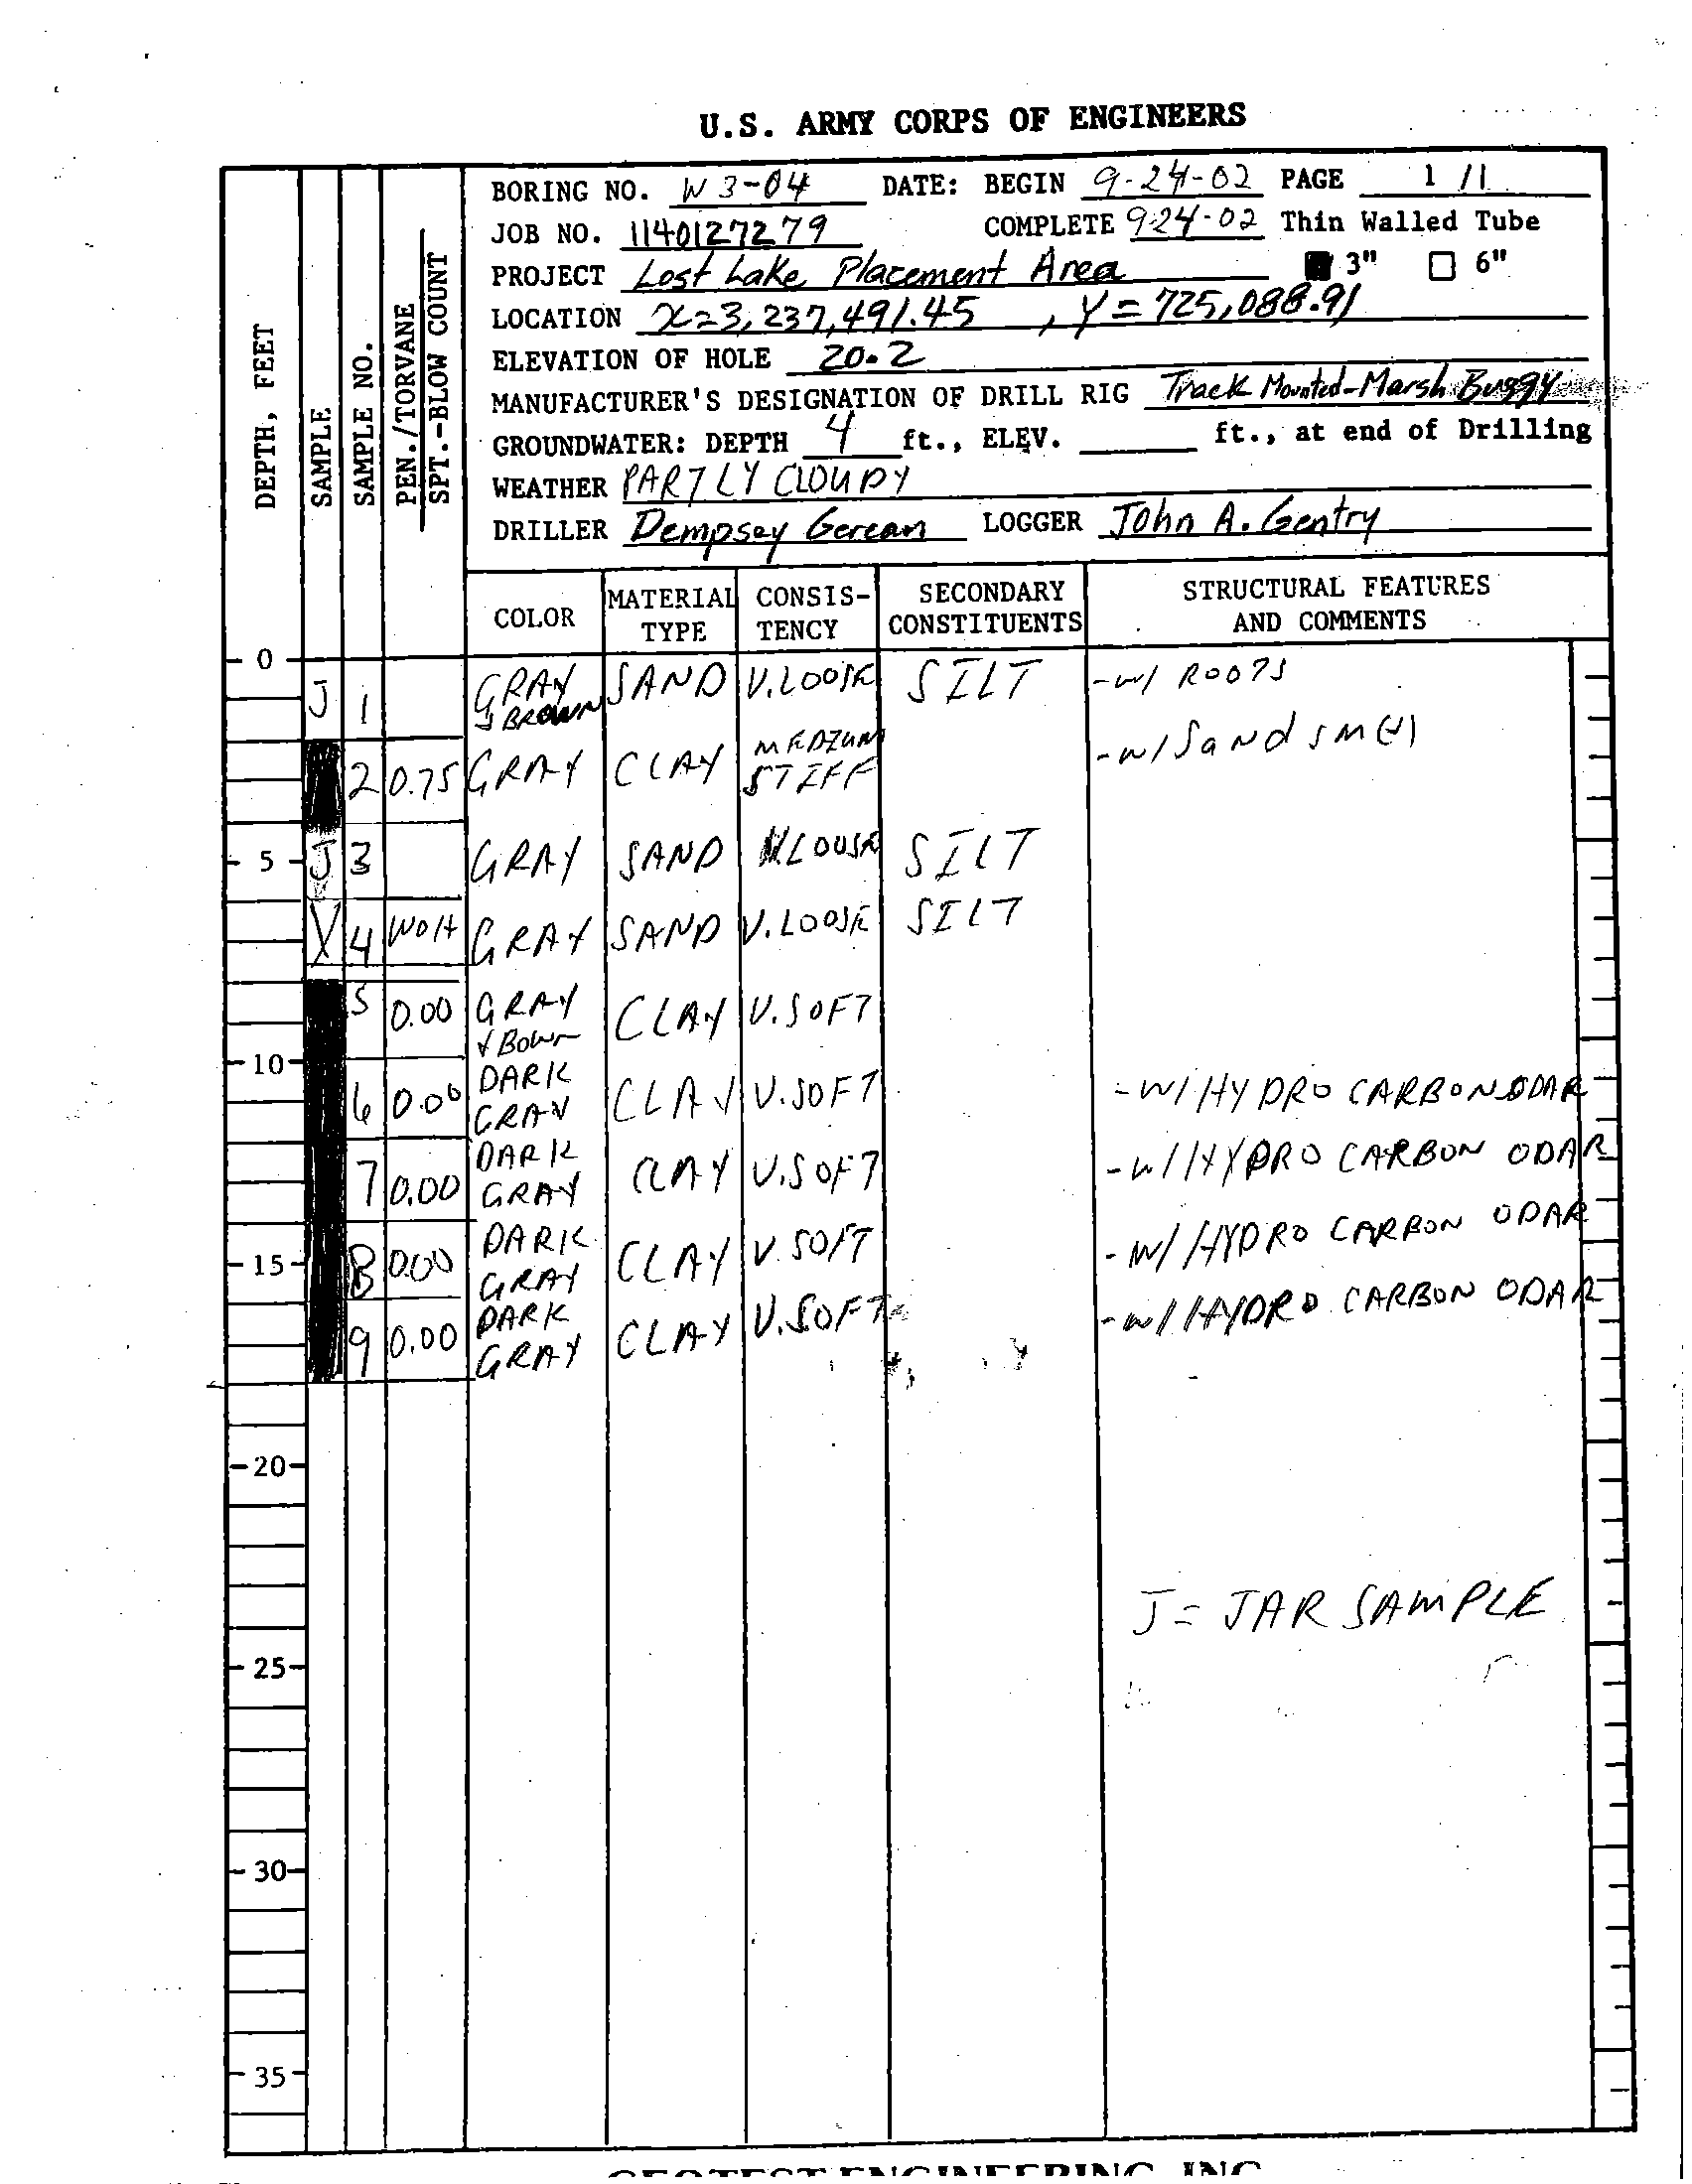 U.S. ARMY CORPS OF ENGINEERS
BORING NO. W3-04 DATE: BEGIN 9-24-02 PAGE 1/1
JOB NO. 1140127279 COMPLETE 9-24-02 Thin Walled Tube
PROJECT Lost Lake Placement Area 3" 6"
LOCATION X=3,237,491.45, Y=725,088.91
ELEVATION OF HOLE 20.2
MANUFACTURER'S DESIGNATION OF DRILL RIG Track Mounted-Marsh Buggy
GROUNDWATER: DEPTH 4 ft., ELEV. ft., at end of Drilling
WEATHER PARTLY CLOUDY
DRILLER Dempsey Gerean LOGGER John A. Gentry
DEPTH, FEET
SAMPLE
SAMPLE NO.
PEN./TORVANE
SPT.-BLOW COUNT
COLOR MATERIAL TYPE CONSIS-TENCY SECONDARY CONSTITUENTS STRUCTURAL FEATURES AND COMMENTS
0
J 1 GRAY & BROWN SAND V.LOOSE SILT -W/ ROOTS
2 0.75 GRAY CLAY MEDIUM STIFF -W/ SAND
5
J 3 GRAY SAND LOOSE SILT
X 4 WOH GRAY SAND V.LOOSE SILT
5 0.00 GRAY & Bown CLAY V.SOFT
10
6 0.00 DARK GRAY CLAY V.SOFT -W/ HYDRO CARBON ODAR
7 0.00 DARK GRAY CLAY V.SOFT -W/ HYDRO CARBON ODAR
15
8 0.00 DARK GRAY CLAY V.SOFT -W/ HYDRO CARBON ODAR
9 0.00 DARK GRAY CLAY V.SOFT -W/ HYDRO CARBON ODAR
20
J = JAR SAMPLE
25
30
35
GEOTEST ENGINEERING, INC